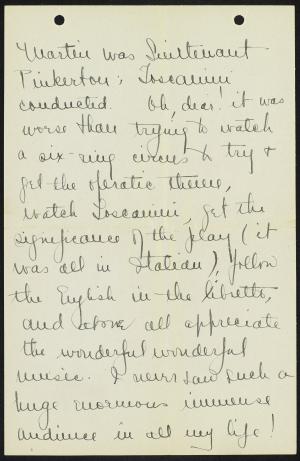 Martin was Lieutenant
Pinkerton; Toscanini
conducted. Oh, dear! it was
worse than trying to watch
a six-ring circus to try &
get the operatic theme,
watch Toscanini, get the
significance of the play (it
was all in Italian), follow
the English in the libretto,
and above all appreciate
the wonderful wonderful
music. I never saw such a
huge enormous immense
audience in all my life!